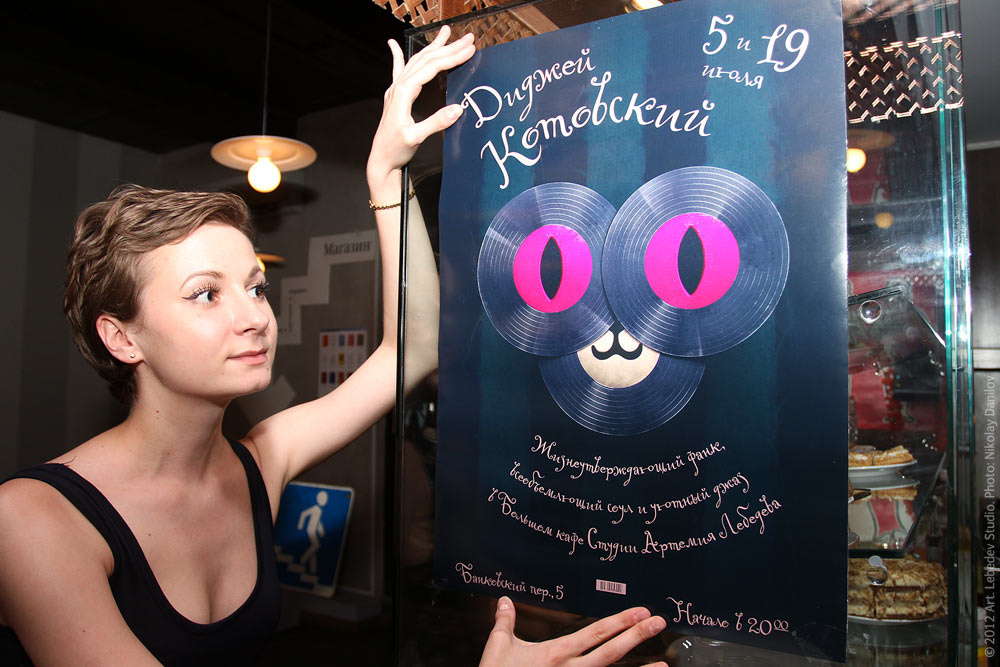 5 и 19
июля
Диджей
Котовский
Магазин
Жизнеутверждающий фанк,
всеобъемлющий соул и уютный джаз
в Большом кафе Студии Артемия Лебедева
Банковский пер., 5
Начало в 20 00
© 2012 Art. Lebedev Studio. Photo: Nikolay Danilov